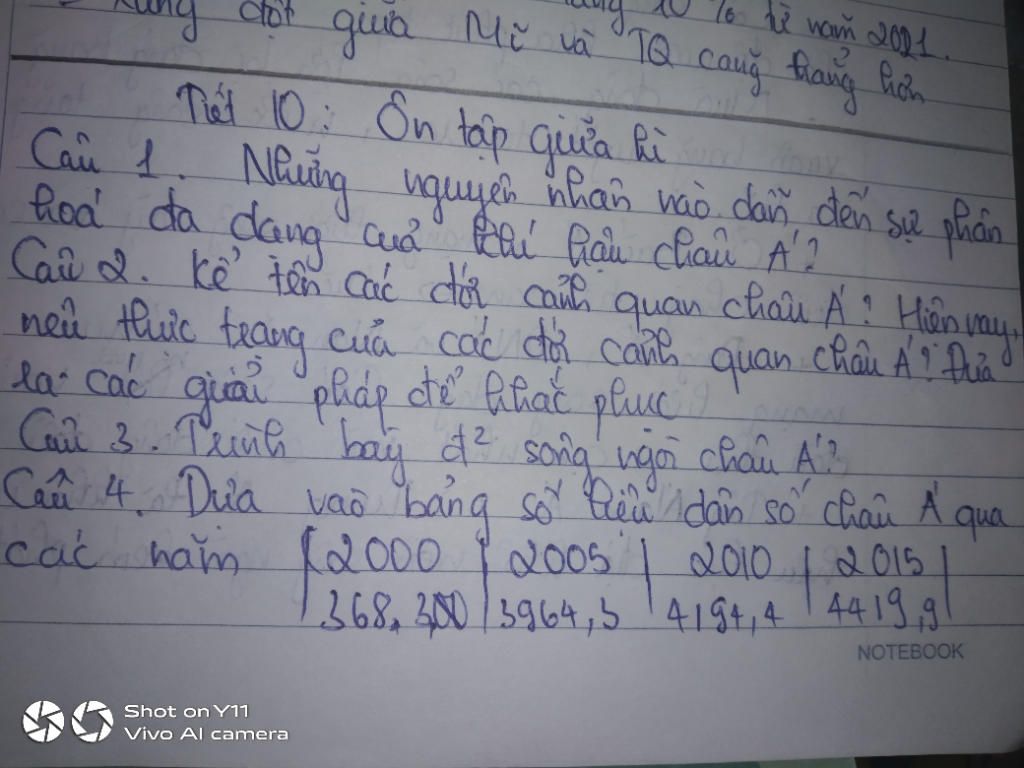 đột giữa Mĩ và TQ căng thẳng hơn
10% từ năm 2021.
Tiết 10: Ôn tập giữa kì
Câu 1. Những nguyên nhân nào dẫn đến sự phân
hoá đa dạng của khí hậu châu Á?
Câu 2. Kể tên các đới cảnh quan châu Á? Hiện nay,
nêu thực trạng của các đới cảnh quan châu Á? Đưa
ra các giải pháp để khắc phục
Câu 3. Trình bày đ² sông ngòi châu Á?
Câu 4. Dựa vào bảng số liệu dân số châu Á qua
các năm | 2000 | 2005 | 2010 | 2015 |
368,300 | 3964,3 | 4194,4 | 4419,9
NOTEBOOK
Shot on Y11
Vivo AI camera